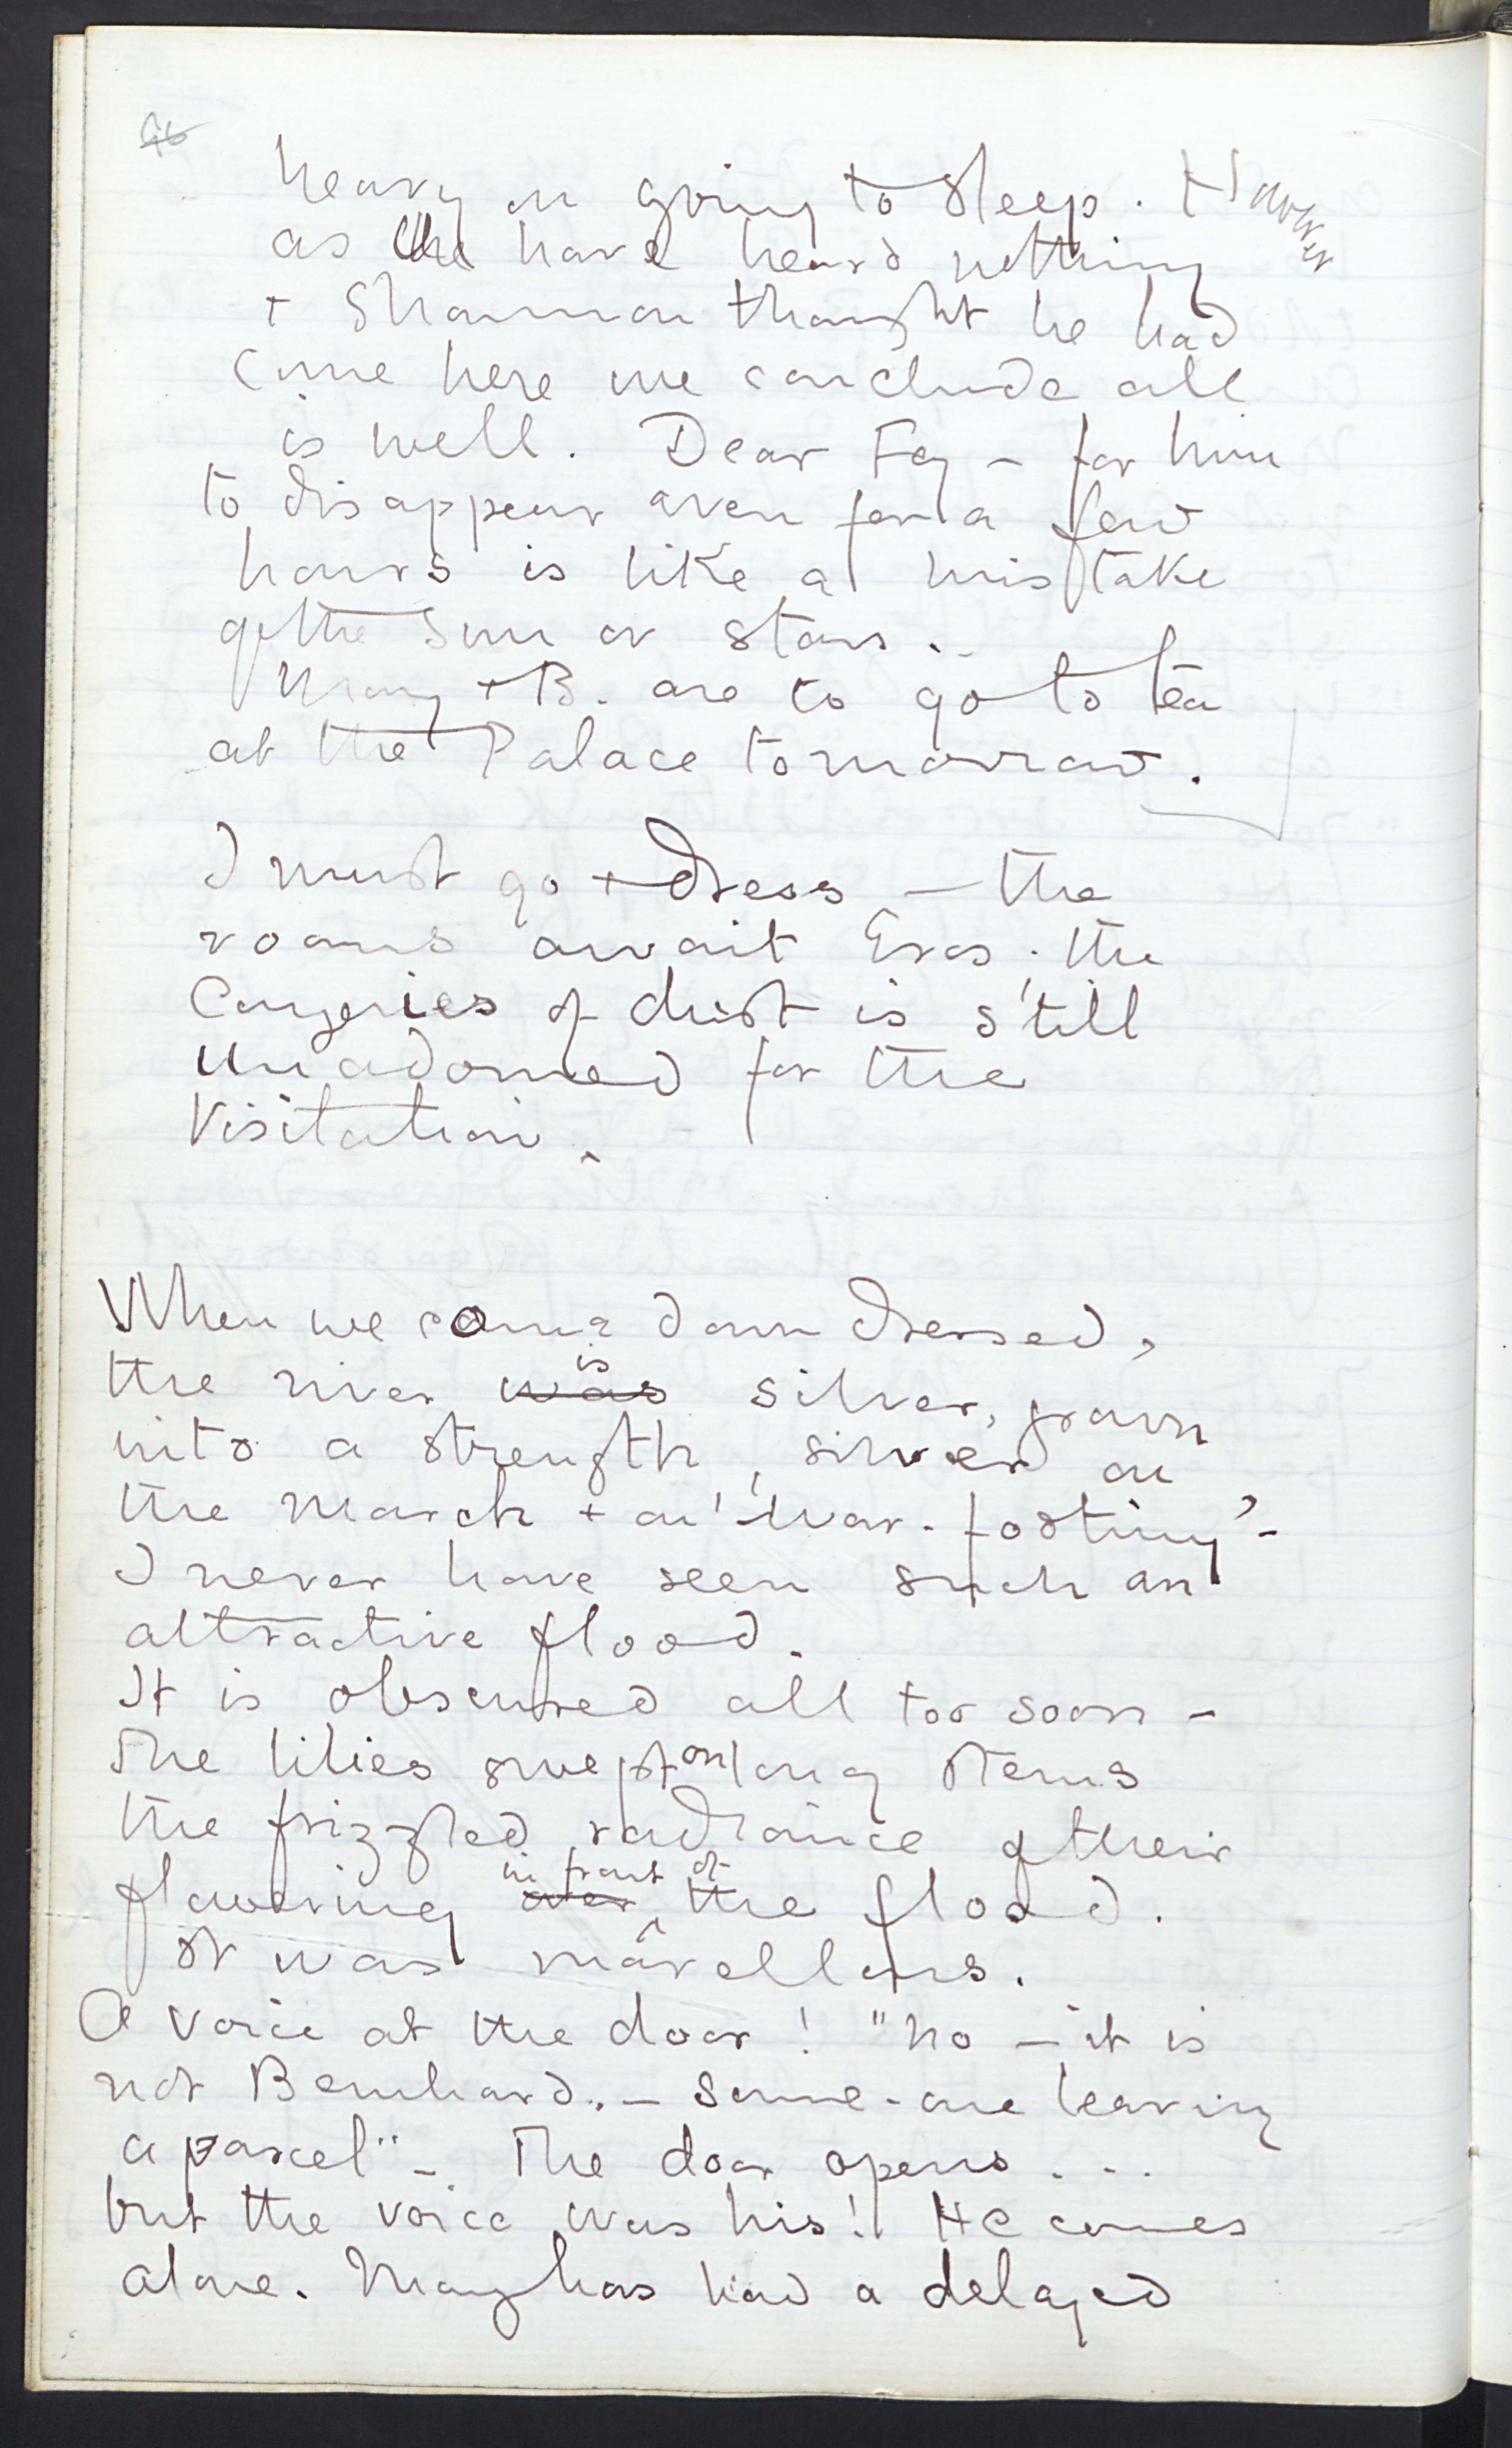 heavy on going to sleep. However
as we have heard nothing
+ Shannon thought he had
come here we conclude all
is well. Dear Fay – for him
to disappear even for a few
hours is like a mistake
of the sun or stars..
Mary + B. are to go to tea
at the Palace tomorrow.
I must go + dress – the
rooms await Eros; the
Congeries of dust is still
unadorned for the
Visitation.
When we come down dressed,
the river was is silver, grown
into a strength, silver on
the march + on 'war-footing' –
I never have seen such an
attractive flood.
It is obscured all too soon –
The lilies swept on long stems
the frizzled radiance of their
flowering over in front of the flood.
It was marvellous.
A voice at the door! "No – it is
not Bernhard. – Some-one leaving
a parcel" – The door opens...
but the voice was his! He comes
alone. Mary has had a delayed